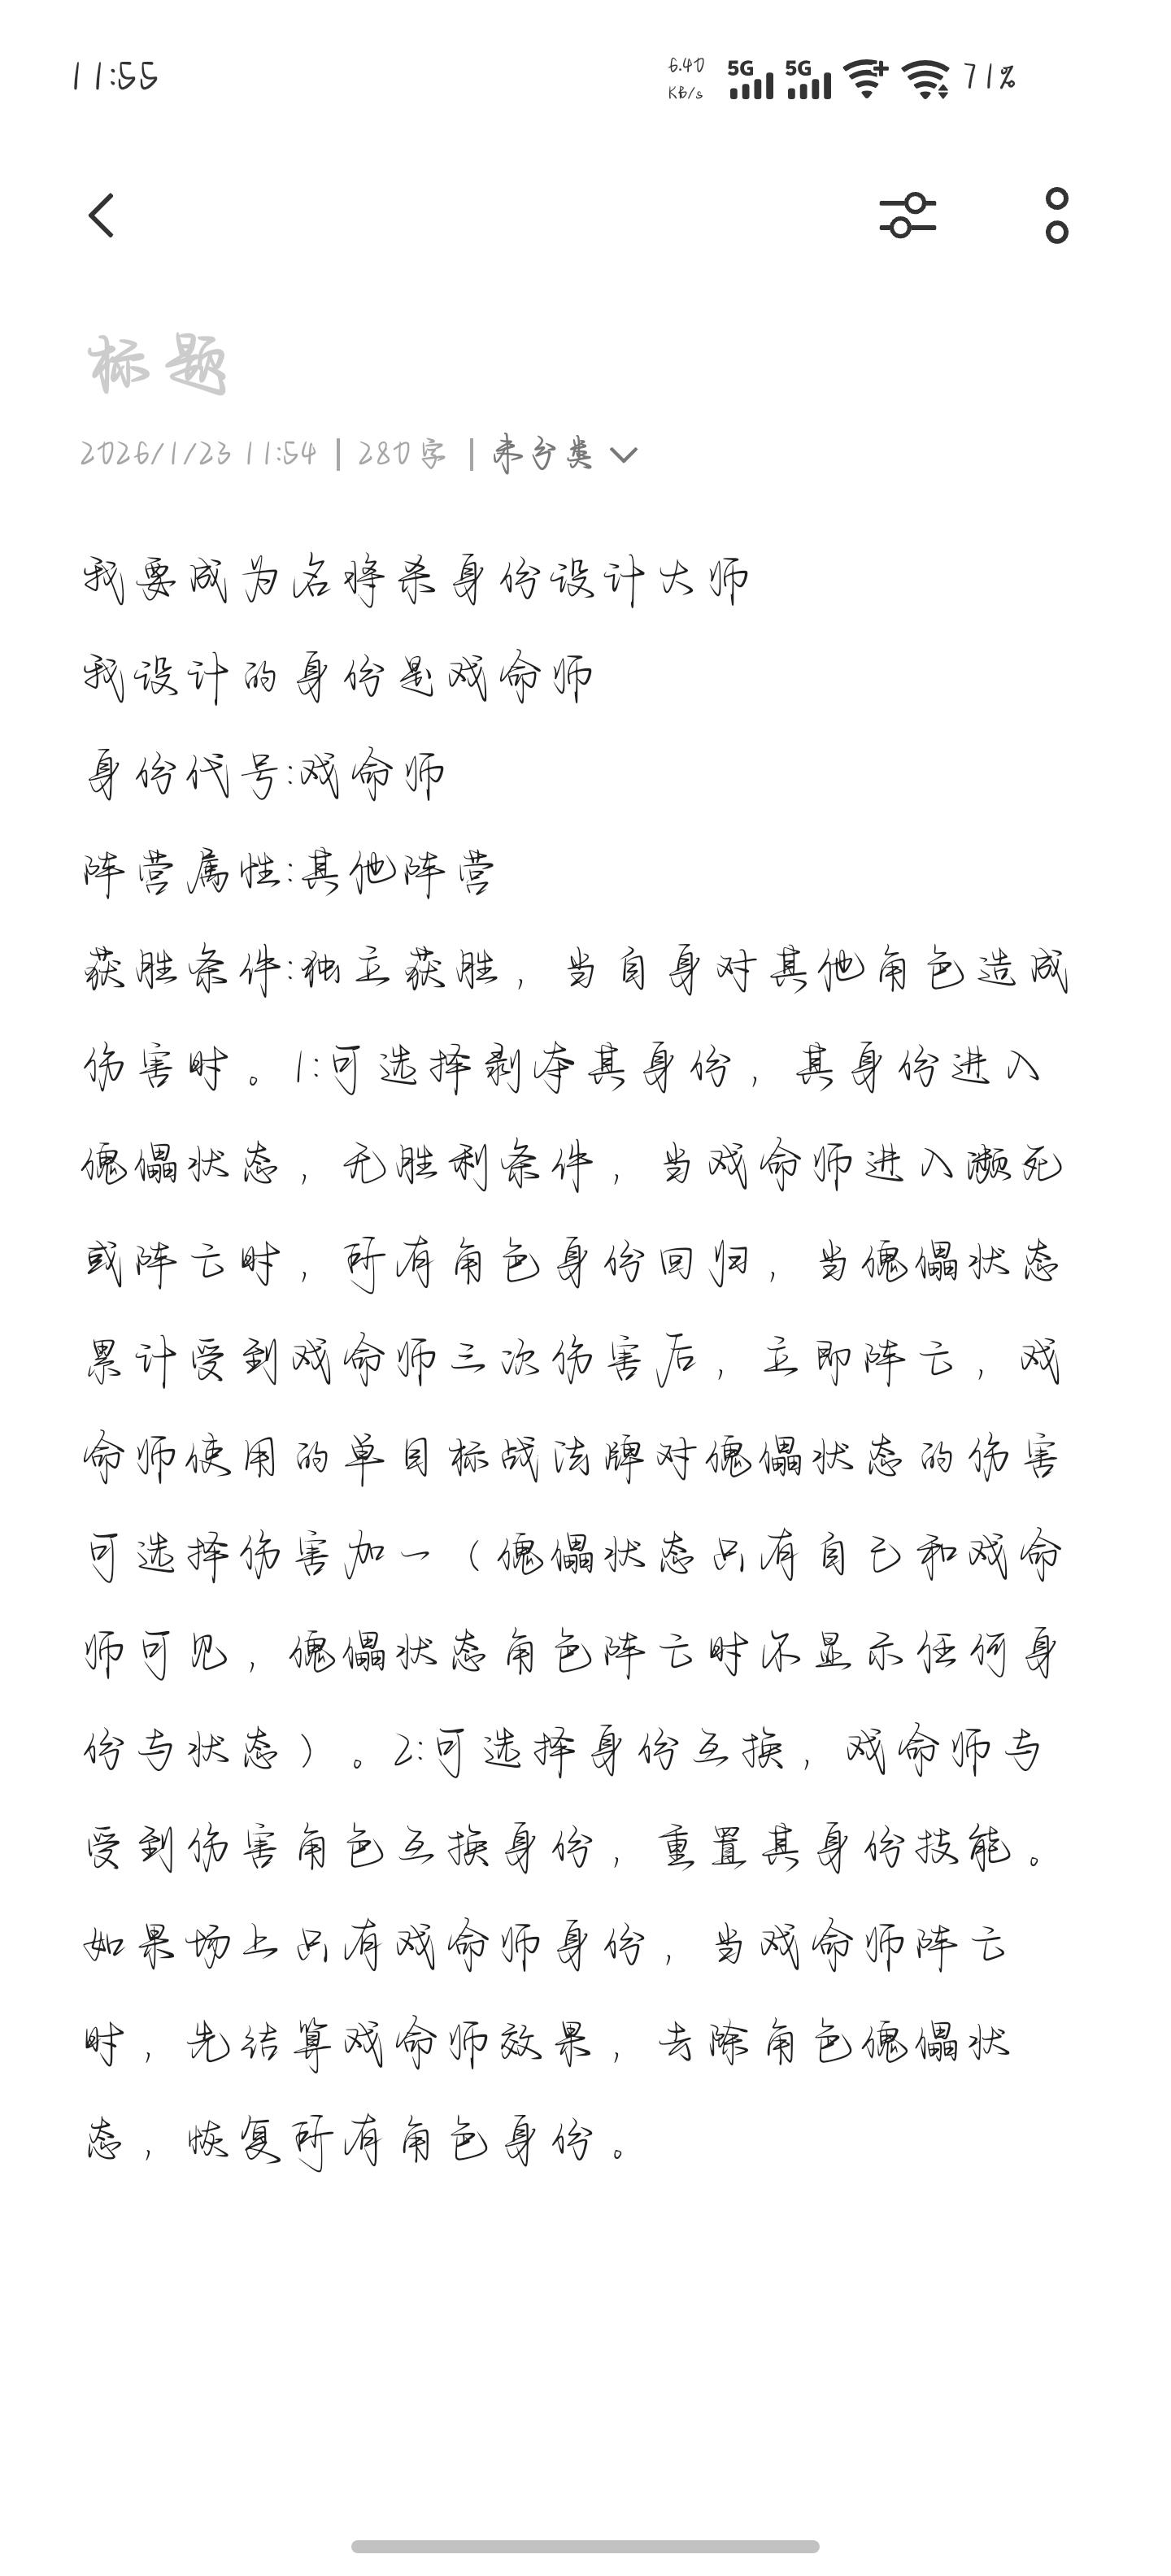 11:55
6.40 KB/s 5G 5G 71%
标题
2026/1/23 11:54 | 280字 | 未分类
我要成为名将杀身份设计大师
我设计的身份是戏命师
身份代号:戏命师
阵营属性:其他阵营
获胜条件:独立获胜，当自身对其他角色造成
伤害时。1:可选择剥夺其身份，其身份进入
傀儡状态，无胜利条件，当戏命师进入濒死
或阵亡时，所有角色身份回归，当傀儡状态
累计受到戏命师三次伤害后，立即阵亡，戏
命师使用的单目标战法牌对傀儡状态的伤害
可选择伤害加一（傀儡状态只有自己和戏命
师可见，傀儡状态角色阵亡时不显示任何身
份与状态）。2:可选择身份互换，戏命师与
受到伤害角色互换身份，重置其身份技能。
如果场上只有戏命师身份，当戏命师阵亡
时，先结算戏命师效果，去除角色傀儡状
态，恢复所有角色身份。